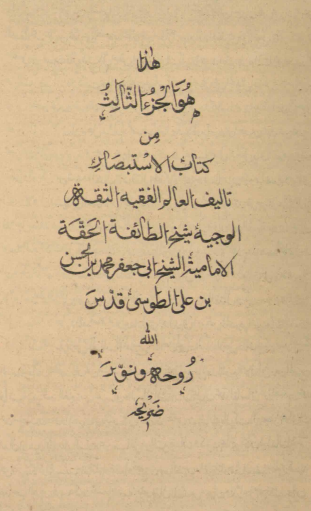 هٰذا
هُوَ الجزءُ الثّالِثُ
مِن
كتابُ الاسْتبصارِ
تاليف العالم الفقيه الثقة
الوجيه شيخ الطائفة الحَقّة
الاماميّة الشيخ ابى جعفر محمد بن الحسن
بن على الطوسى قدّسَ
الله
رُوحه ونوّرَ
ضَرِيحَه